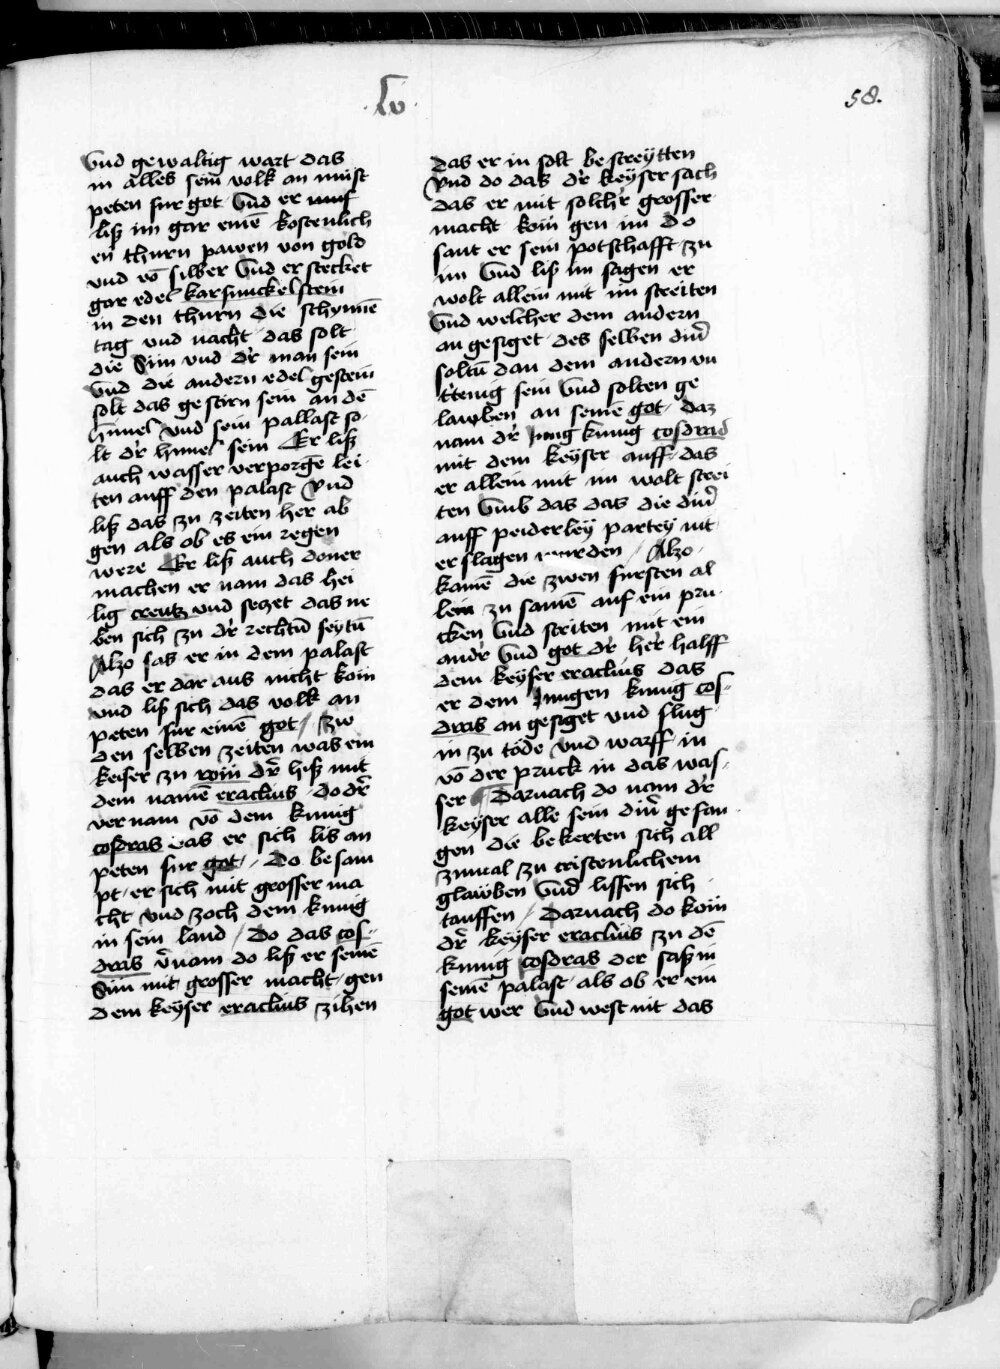 .lv.
58.
Vnd gewaltig wart das
in alles sein volk an must
peten fur got Vnd er
liß im gar einē kostenlich
en thurn pawen von gold
vnd vō silber Vnd er stecket
gar edel karfunckel stein
in den thurn die schynnē
tag vnd nacht das solt
die Sun vnd d'r man sein
Vnd die andern edel gestein
solt das gestirn sein an dē
himel Vnd sein pallast so
lt d'r himel sein Er liß
auch wasser verporgē lei
ten auff den palast Vnd
liß das zu zeiten her ab
gen als ob es ein regen
were Er liß auch doner
machen er nam das hei
lig creutz vnd seczet das ne
ben sich zu d'r rechtū seytū
Alzo sas er in dem palast
das er dar aus nicht kom
vnd liß sich das volk an
peten fur einē got / Zw
den selben zeiten was ein
keiser zu rom d'r hiß mit
dem namē eraclius do d'r
vernam vō dem kunig
cosdras das er sich lis an
peten fur got / Do besam
pt er sich mit grosser ma
cht vnd zoch dem kunig
in sein land / Do das cos-
dras v'nam do liß er seinē
Sun mit grosser macht gen
dem keyser eraclius zihen
das er in solt bestreytten
Vnd do das d'r keyser sach
das er mit solch'r grosser
macht kom gen im do
sant er sein potschafft zu
im Vnd liß im sagen er
wolt allein mit im streiten
Vnd welcher dem andern
an gesiget des selben din'
soltū dan dem andern vn
t'tenig sein Vnd solten ge
lawben an seinē got daz
nam d'r Jung kunig cosdras
mit dem keyser auff das
er allein mit im wolt strei
ten Vmb das das die din'
auff peiderley partey nit
erslagen wurden / Alzo
kamē die zwen fursten al
lein zu samē auf ein pru
cken Vnd striten mit ein
and'r Vnd got d'r her' halff
dem keyser eraclius das
er dem Jungen kunig cos-
dras an gesiget vnd slug
in zu tode Vnd warff in
vō der pruck in das was-
ser Darnach do nam d'r
keyser alle sein din' gefan
gen die bekerten sich all
zumal zu cristenlichem
glawben Vnd lissen sich
tauffen / Darnach do kom
d'r keyser eraclius zu dē
kunig cosdras der saß in
seinē palast als ob er ein
got wer Vnd west nit das